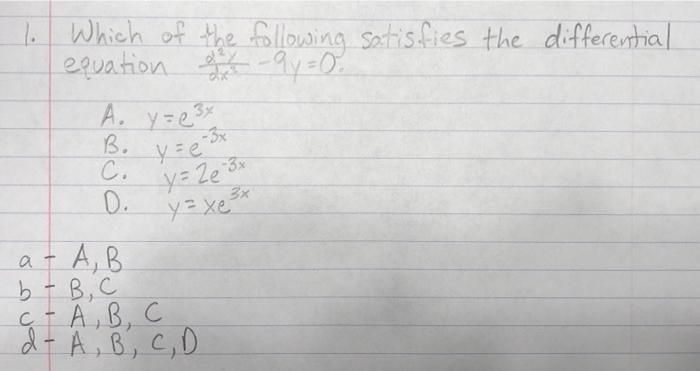 1. Which of the following satisfies the differential
equation d²y/dx² - 9y = 0.
A. y = e^3x
B. y = e^-3x
C. y = 2e^-3x
D. y = xe^3x
a - A, B
b - B, C
c - A, B, C
d - A, B, C, D